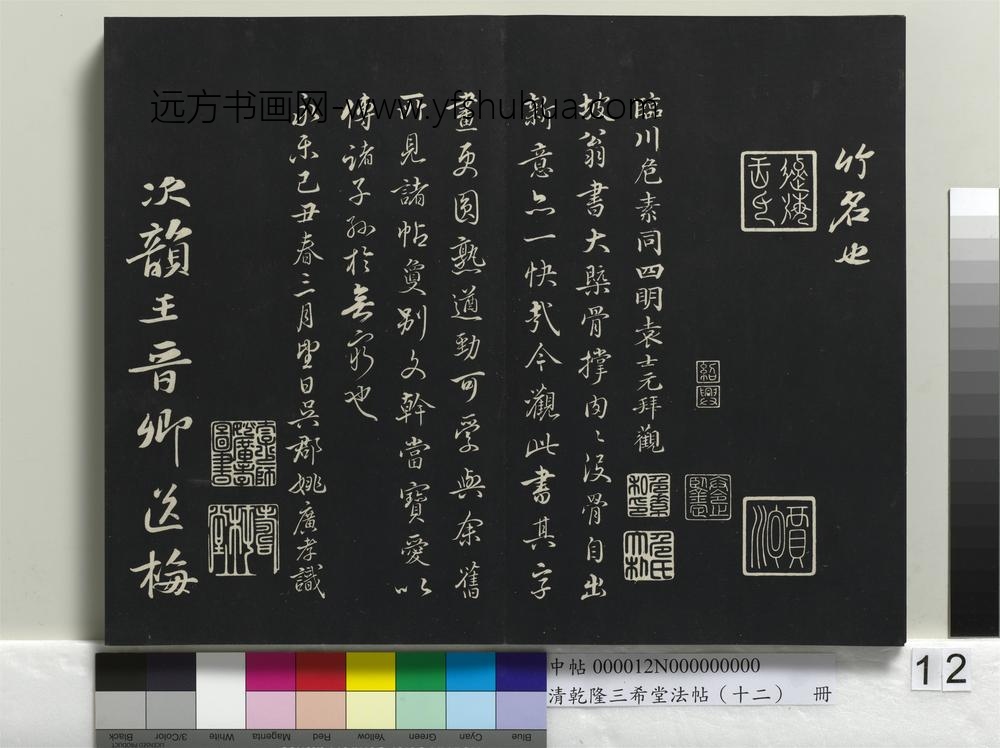 竹名也
臨川危素同四明袁士元拜觀
坡翁書大槩骨撐肉〻没骨自出
新意亦一快哉今觀此書其字
畫更圓熟遒勁可愛與余舊
所見諸帖敻别文幹當寶愛以
傳諸子孫於無窮也
永樂己丑春三月望日吳郡姚廣孝識
次韻王晋卿送梅
紹興
危氏太朴
賈
远方书画网-www.yfshuhua.com
中帖 000012N000000000
清乾隆三希堂法帖（十二） 冊
12
Black
3/Color
White
Magenta
Red
Yellow
Green
Cyan
Blue